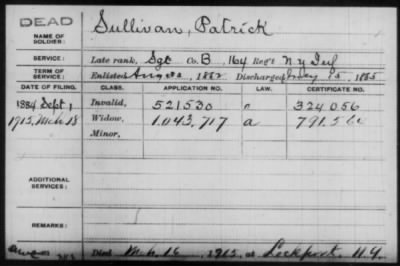 DEAD
NAME OF SOLDIER: Sullivan, Patrick
SERVICE: Late rank, Sgt Co. B, 164 Reg't N.Y. Inf
TERM OF SERVICE: Enlisted Aug 1862 Discharged 15, 1865
DATE OF FILING. CLASS. APPLICATION NO. LAW. CERTIFICATE NO.
1884 Sept. 1 Invalid, 521530 324056
1913, Mch 18 Widow, 1.043.717 a
Minor,
ADDITIONAL SERVICES:
REMARKS:
Died Mch. 16, 1913, at Lockport, N.Y.